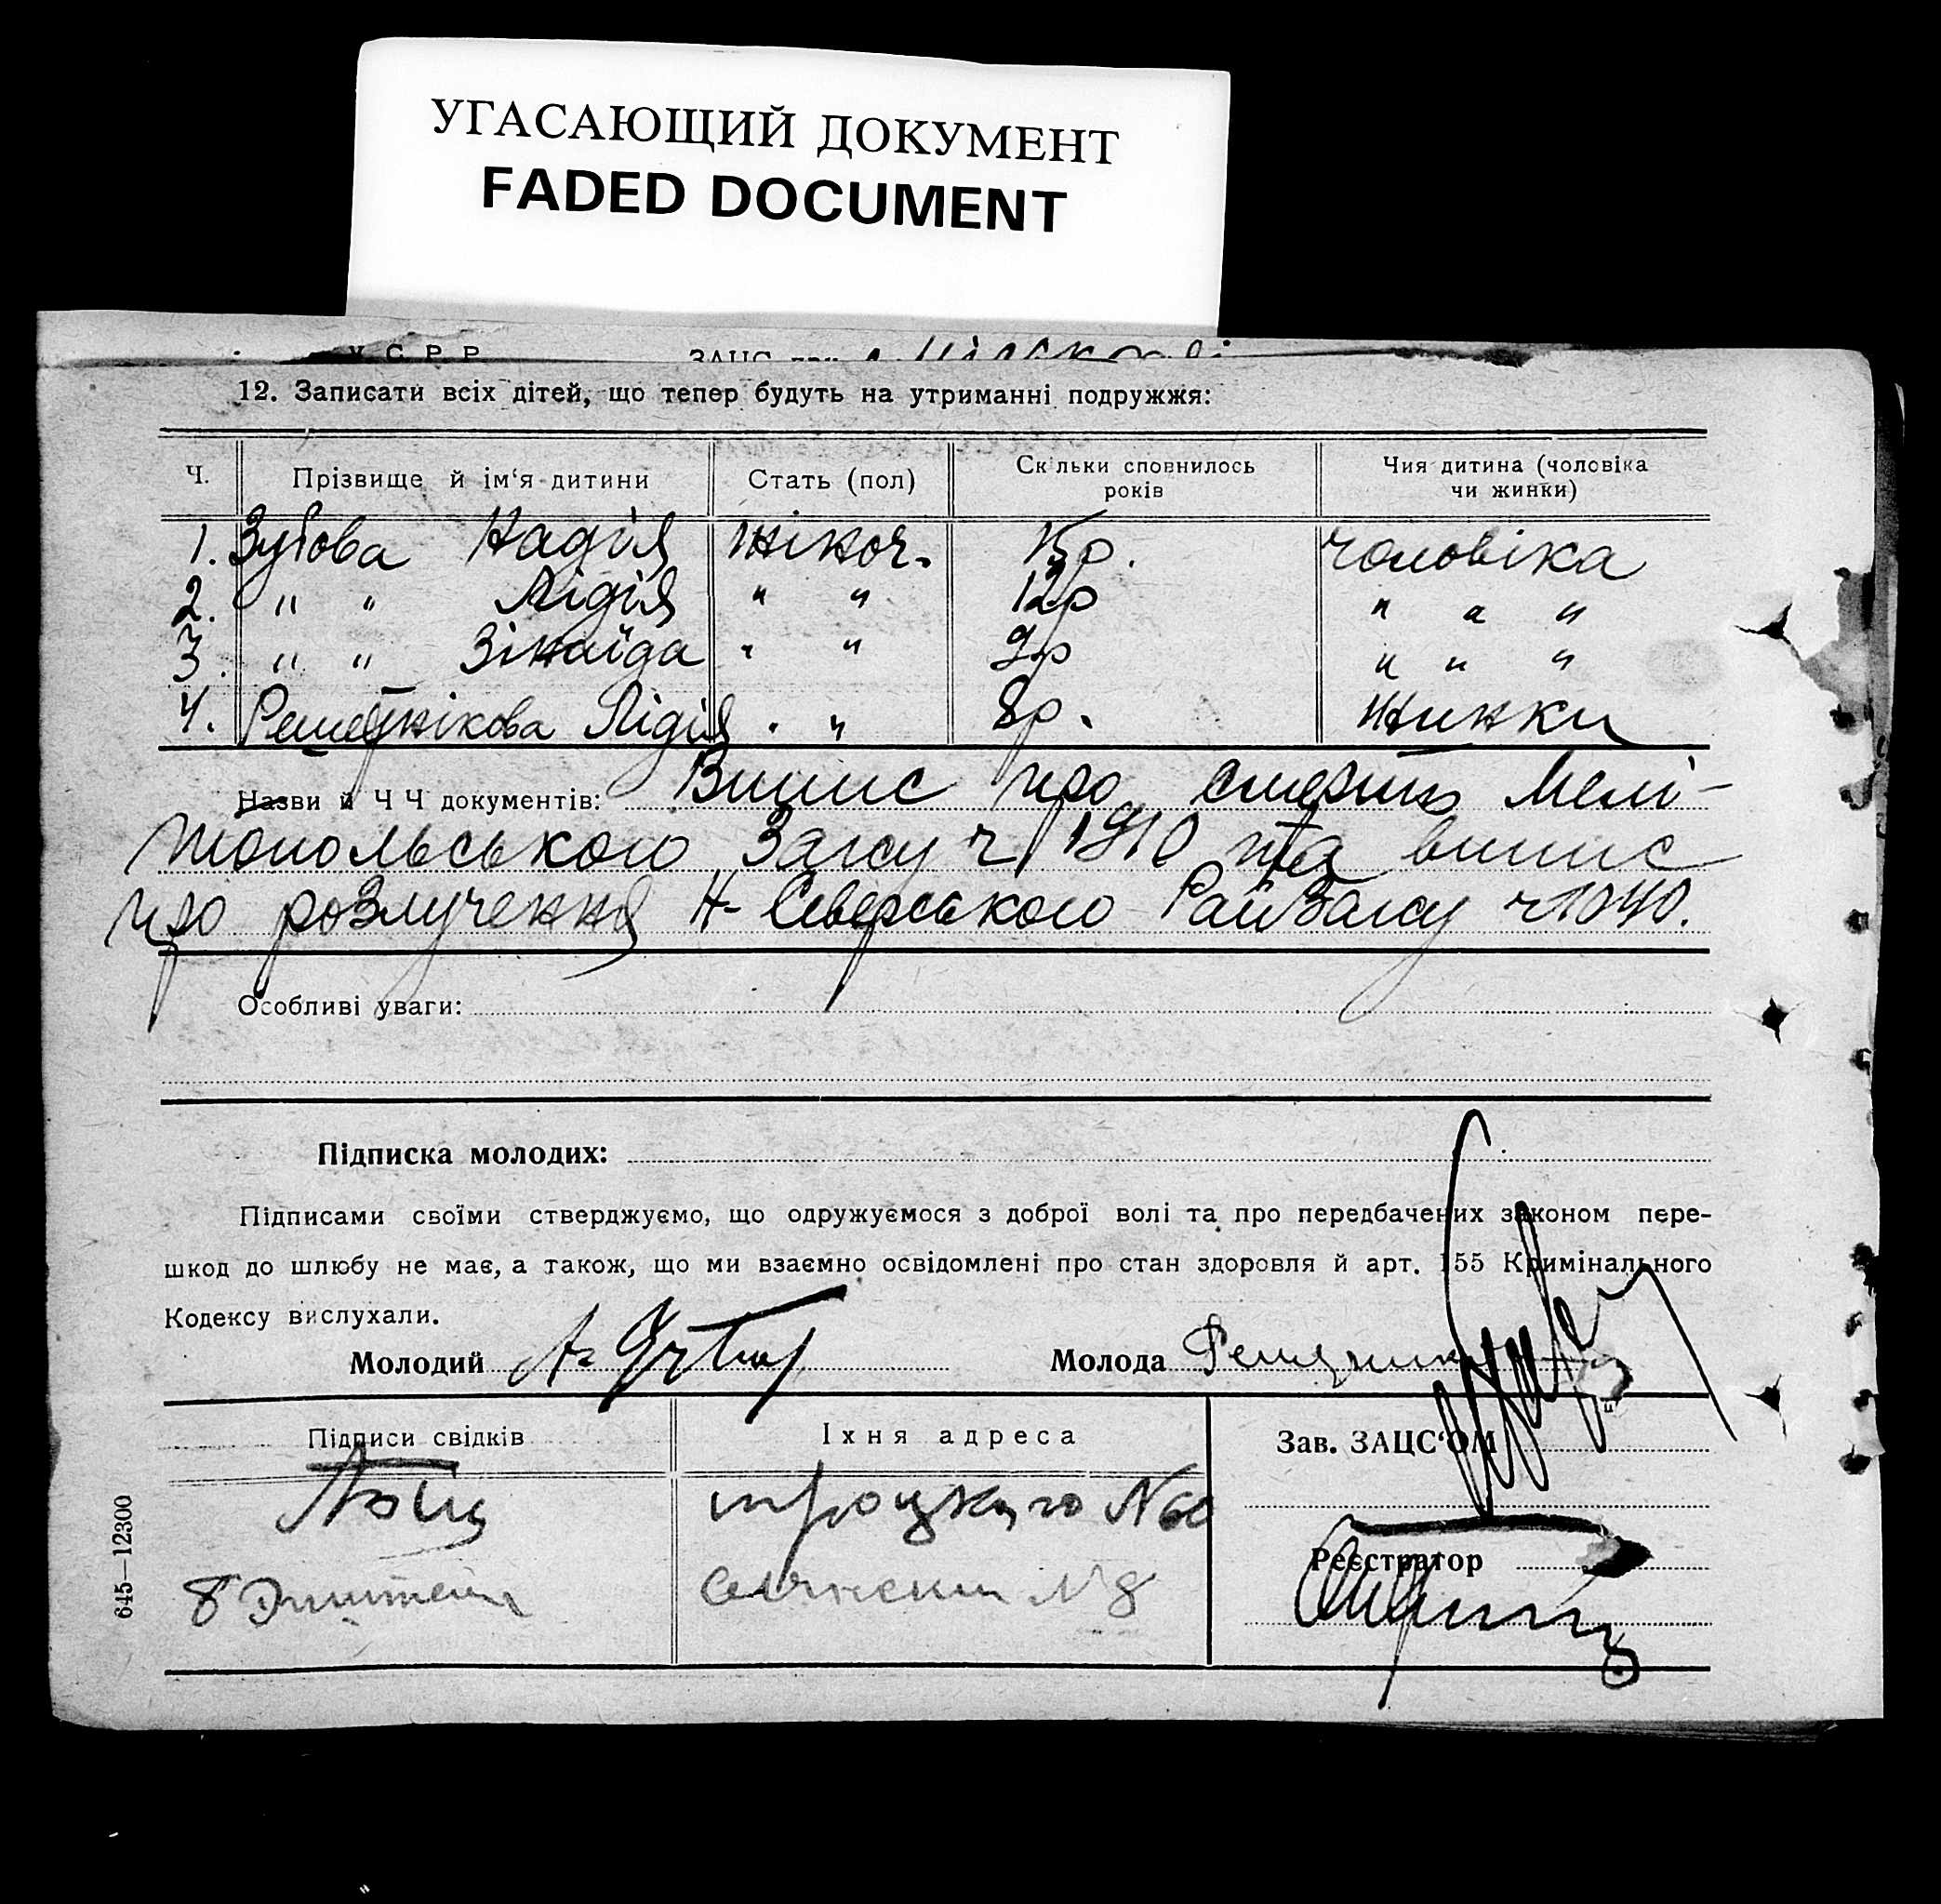 УГАСАЮЩИЙ ДОКУМЕНТ
FADED DOCUMENT
У. С. Р. Р. ЗАЦС при
12. Записати всіх дітей, що тепер будуть на утриманні подружжя:
Ч. Прізвище й ім‘я дитини Стать (пол) Скільки сповнилось років Чия дитина (чоловіка чи жинки)
1. Зубова Надія жіноч. 15р. чоловіка
2. " " Лідія " " 12р " " "
3. " " Зінаїда " " 9р " " "
4. Решетнікова Лідія " " 8р. жинки
Назви й Ч Ч документів: Випис про смерть Мелі-
топольського Загсу ч 1910 та випис
про розлучення Н-Сіверського РайЗагсу ч 1040.
Особливі уваги:
Підписка молодих:
Підписами своїми стверджуємо, що одружуємося з доброї волі та про передбачених законом пере-
шкод до шлюбу не має, а також, що ми взаємно освідомлені про стан здоровля й арт. 155 Кримінального
Кодексу вислухали.
Молодий Молода
Підписи свідків Їхня адреса Зав. ЗАЦС‘ОМ
троцкого N 60
Реєстратор
N 8
645—12300